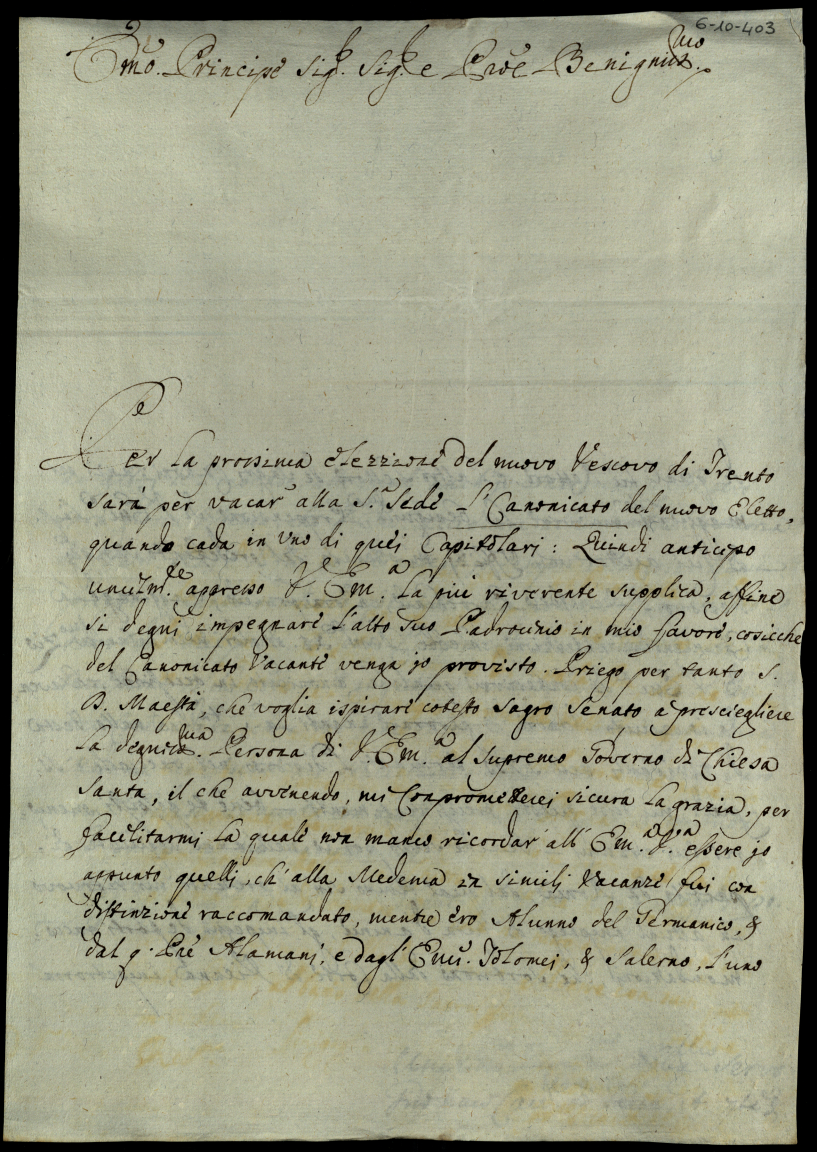 6-10-403
Emo. Principe Sigr. Sigr. e Prōe Benignissmo.
Per la prossima elezzione del nuovo Vescovo di Trento
sarà per vacar alla S.a Sede l'Canonicato del nuovo Eletto,
quando cada in uno di quei Capitolari: Quindi anticipo
umilmte. appresso V.ra Em.a la più riverente supplica, affine
si degni impegnare l'alto suo Padrocinio in mio favore, cosicche
del Canonicato Vacante venga jo provisto. Priego per tanto S.
D. Maestà, che voglia ispirare cotesto Sagro Senato a presciegliere
la degnissma. Persona di V. Em.a al supremo Governo di Chiesa
Santa, il che avvenendo, mi Comprometterei sicura la grazia, per
facilitarmi la quale non manco ricordar' all' Em.a V.a essere jo
appunto quelli, ch' alla Medema in simili Vacanze fui con
distinzione raccomandato, mentre ero Alunno del Germanico, &
dal q. Prē Alamani, e dagl' Emi. Tolomei, & Salerno, l'uno